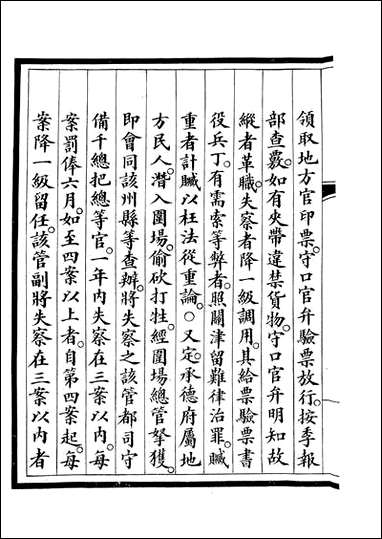 領取地方官印票。守口官弁驗票放行。按季報
部查覈。如有夾帶違禁貨物。守口官弁明知故
縱者革職。失察者降一級調用。其給票驗票書
役兵丁。有需索等弊者。照關津留難律治罪。贓
重者計贓以枉法從重論。○又定。承德府屬地
方民人。潛入圍場。偷砍打牲。經圍場總管拏獲。
即會同該州縣等查辦。將失察之該管都司守
備千總把總等官。一年內失察在三案以內。每
案罰俸六月。如至四案以上者。自第四案起。每
案降一級留任。該管副將失察在三案以內者